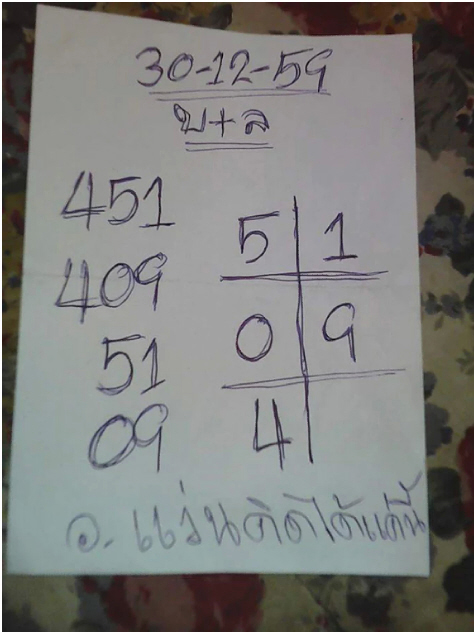 30-12-59
บ+ล
451
409
51
09
5 1
0 9
4
อ. แว่นคิดได้แค่นี้